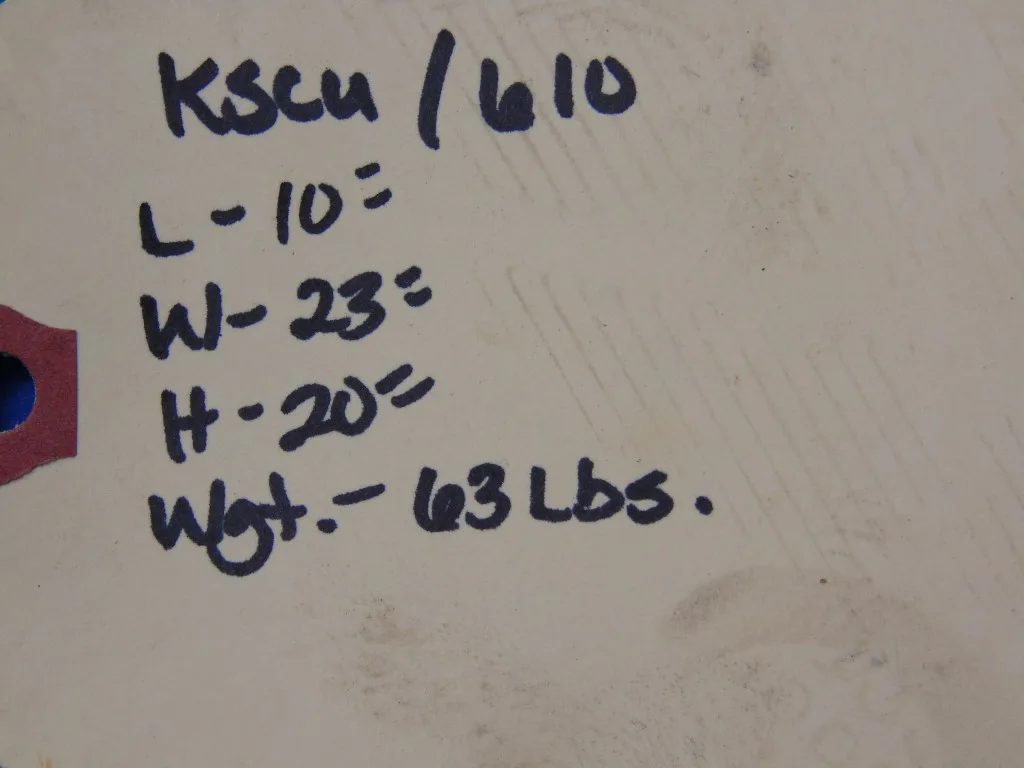 KSCU / 610
L - 10"
W - 23"
H - 20"
Wgt. - 63 Lbs.